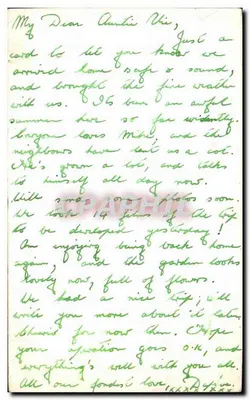 My Dear Auntie Vic,
Just a
card to let you know we
arrived home safe & sound,
and brought the fine weather
with us. Its been an awful
summer here so far evidently.
loves Mike, and the
neighbours have lent us a cot.
He's grown a lot, and talks
to himself all day now.
Will send some photos soon.
We took 14 films of the trip
to be developed yesterday!
Am enjoying being back home
again, and the garden looks
lovely now, full of flowers.
We had a nice trip; we'll
write you more about it later.
for now then. Hope
your operation goes o.k, and
everything's well with you all.
All our fondest love,
xxxxxxx